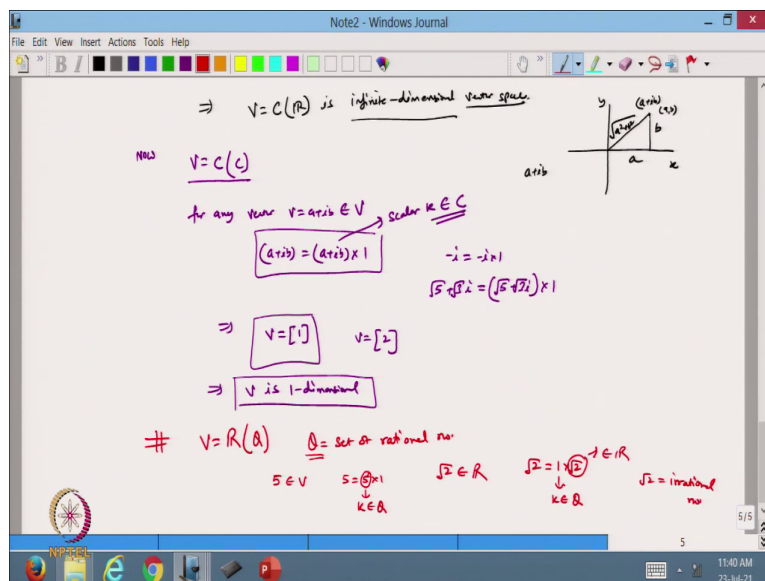 Note2 - Windows Journal
File Edit View Insert Actions Tools Help
B I
⇒ V = C(R) is infinite-dimensional vector space.
y
(a+ib)
(a,b)
√a²+b²
b
a
x
a+ib
Now V = C(C)
for any vector v = a+ib ∈ V
scalar k ∈ C
(a+ib) = (a+ib) × 1
-i = -i×1
√5 + √3 i = (√5 + √3 i) × 1
⇒ V = [1] V = [2]
⇒ V is 1-dimensional
# V = R(Q) Q = set of rational no.
5 ∈ V 5 = 5×1 √2 ∈ R √2 = 1×√2 → ∈ R √2 = irrational no.
k ∈ Q k ∈ Q
5/5
NPTEL
5
11:40 AM
23-Jul-21